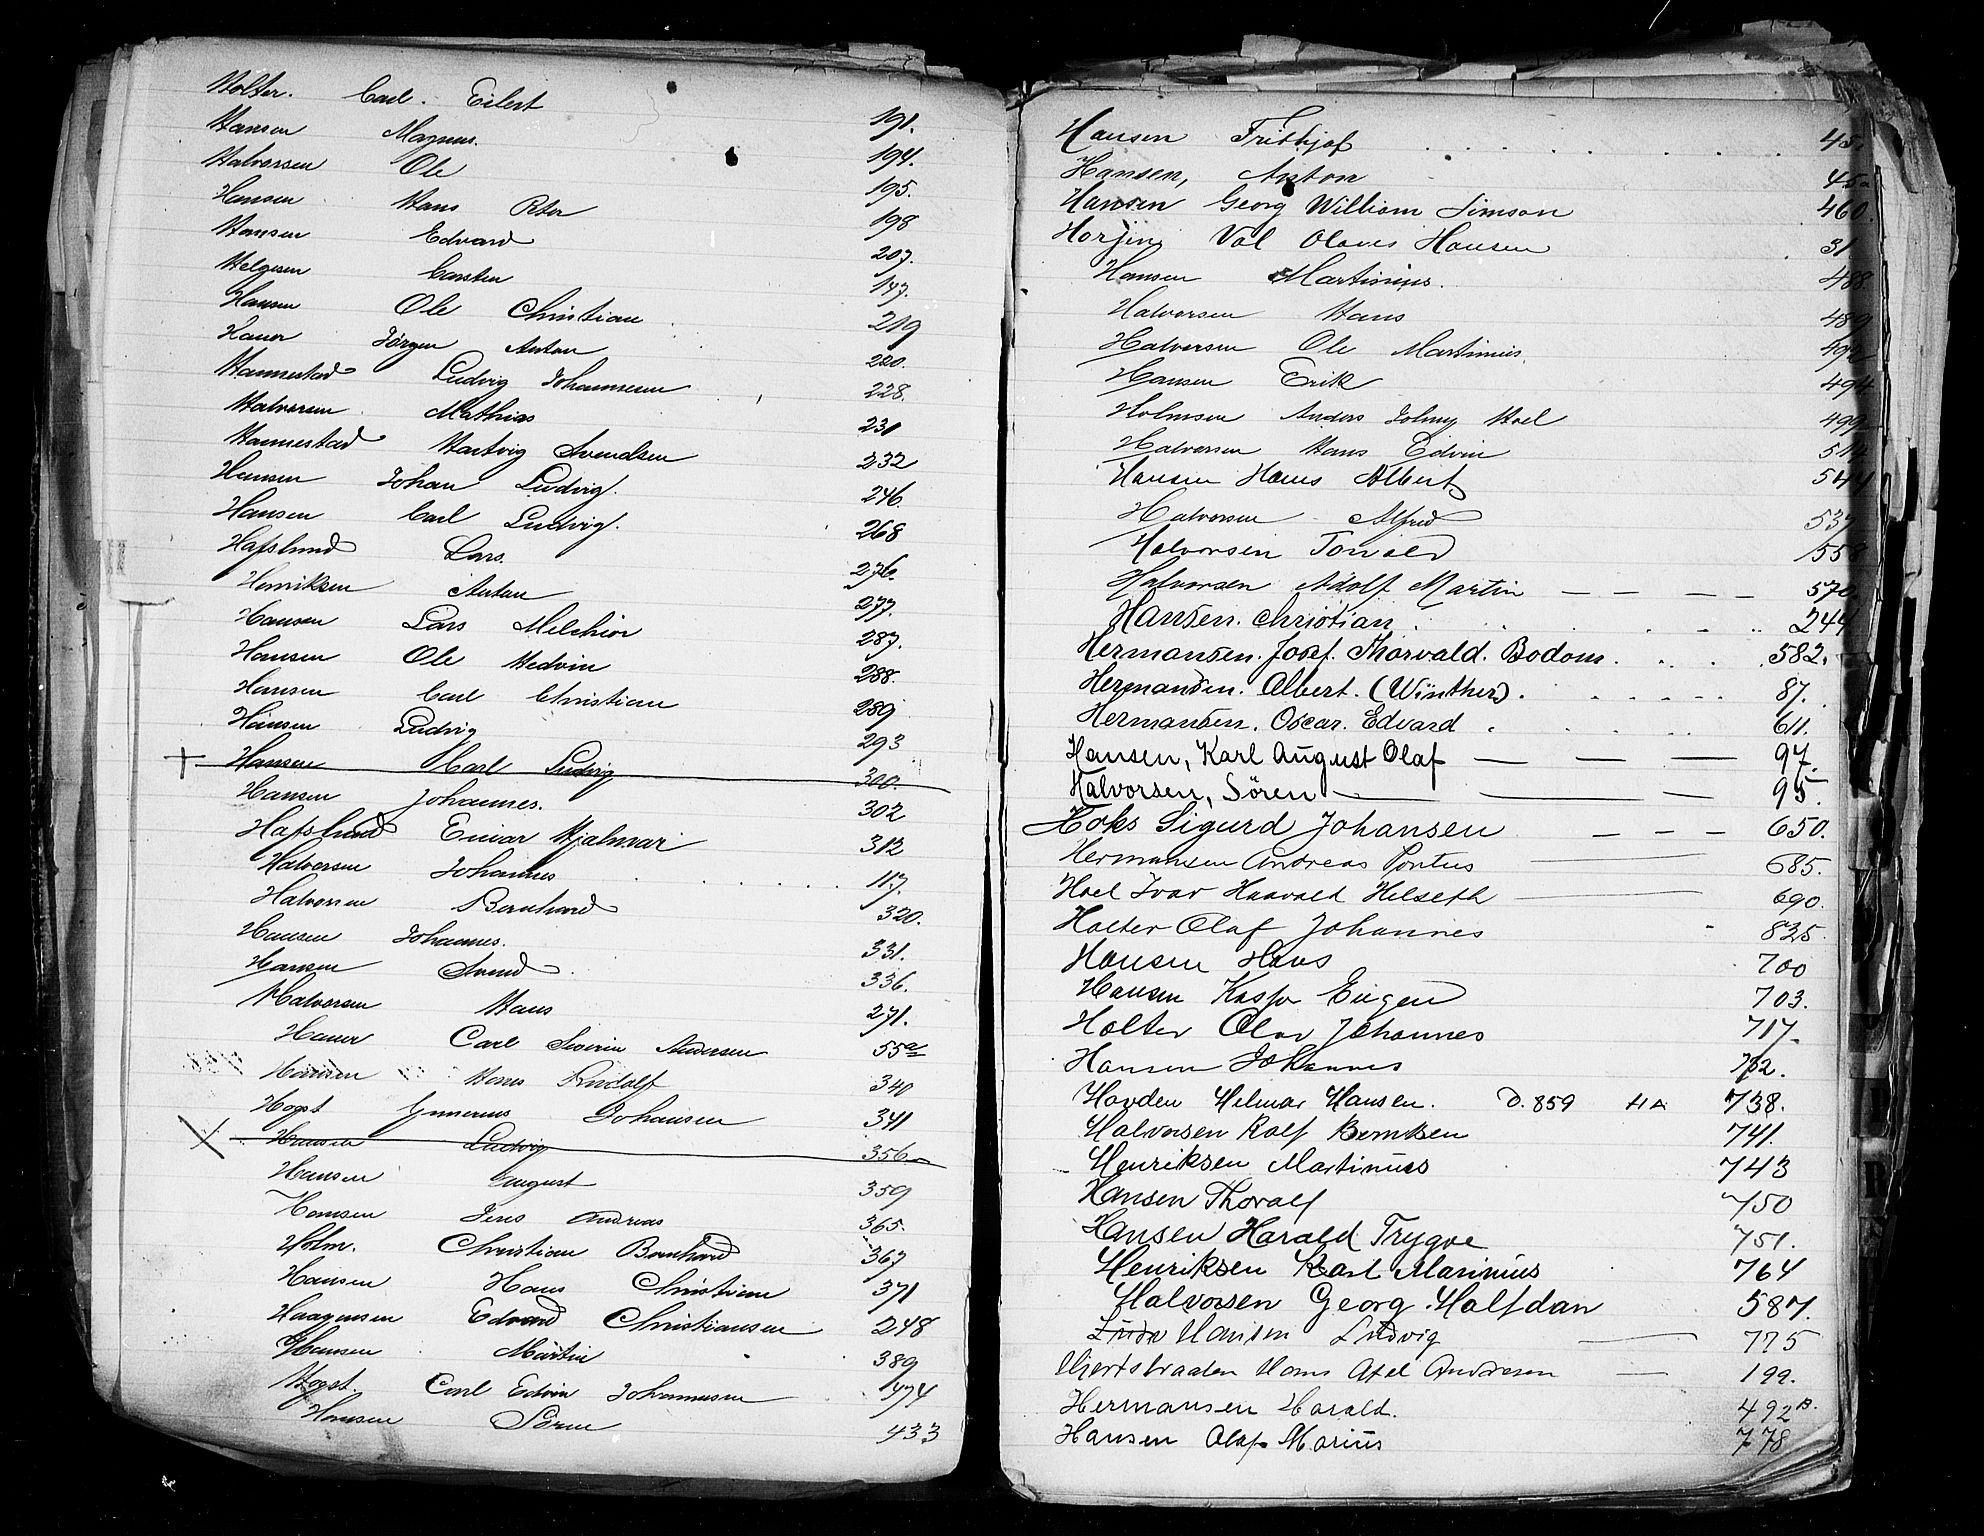 Holter. Carl. Eilert 191.
Hansen Magnus. 194.
Halvorsen Ole 195.
Hansen Hans Peter 198
Hansen Edvard 207.
Helgesen Carsten 147.
Hansen Ole Christian 219
Hauer Jörgen Anton 220.
Hannestad Ludvig Johannesen 228.
Halvorsen Mathias 231
Hannestad Hartvig Svendsen 232
Hansen Johan Ludvig. 246.
Hansen Carl Ludvig. 268
Hafslund Lars. 276.
Henriksen Anton 277.
Hansen Lars Melchior 287.
Hansen Ole Hedvin 288.
Hansen Carl Christian 289
Hansen Ludvig 293
Hansen Carl Ludvig 300.
Hansen Johannes. 302
Hafslund Einar Hjalmar 312
Halvorsen Johannes 117.
Halvorsen Bernhard 320.
Hansen Johannes. 331.
Hansen Svend 336.
Halvorsen Hans 271.
Hauer Carl Severin Andersen 55a
Hansen Hans Rudolf 340
Høgst Johansen 341
Hansen Ludvig 356
Hansen August 359
Hansen Jens Andreas 365.
Holm. Christian Bernhard 367
Hansen Hans Christian 371
Haagensen Edvard Christiansen 248
Hansen Martin 389
Høgst. Carl Edvin Johannesen 474
Hansen Sören 433
Hansen Frithjof 45.
Hansen, Anton 45a
Hansen Georg William Simson 460.
Val Olaves Hansen 31
Hansen Martinius. 488.
Halvorsen Hans 489
Halvorsen Ole Martinius. 492
Hansen Erik 494
Holmsen Anders Johny Hoel 499
Halvorsen Hans Edvin 514
Hansen Hans Albert 544
Halvorsen Alfred 537
Halvorsen Tonald 558
Halvorsen Adolf Martin 570
Hansen. Christian 244
Hermansen. Josef. Thorvald. Bodom. 582.
Hermansen. Albert. (Winther). 87.
Hermansen. Oscar. Edvard 611.
Hansen, Karl August Olaf 97.
Halvorsen, Sören 95.
Hoks Sigurd Johansen 650.
Hermansen Andreas Pontus 685.
Hoel Ivar Haavald Helseth 690.
Holter Olaf Johannes 825.
Hansen Hans 700
Hansen Kaspar Eugen 703.
Holter Olav Johannes 717.
Hansen Johannes 732.
Hovden Helmar Hansen. D. 859 HA 738.
Halvorsen Rolf Berntsen 741.
Henriksen Martinius 743
Hansen Thoralf 750
Hansen Harald Trygve 751.
Henriksen Karl Marinius 764
Halvorsen Georg Halfdan 587.
Hansen Ludvig 775
Hans Axel Andresen 199.
Hermansen Harald. 492 B.
Hansen Olaf Marius 778